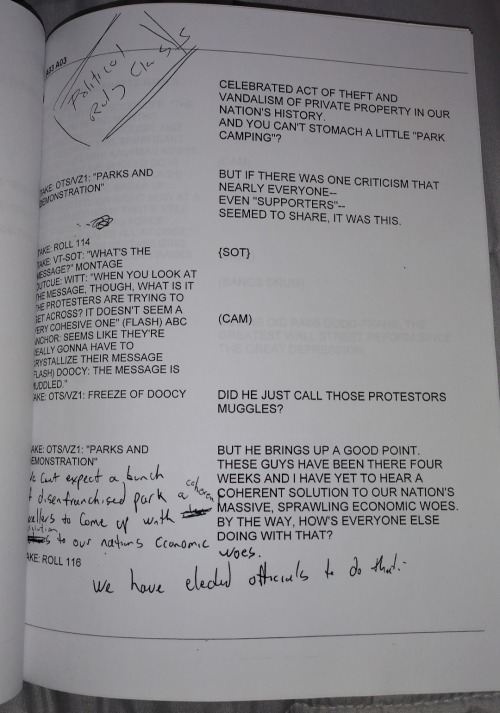 A03 A03
Political
Ruly Class
CELEBRATED ACT OF THEFT AND
VANDALISM OF PRIVATE PROPERTY IN OUR
NATION'S HISTORY.
AND YOU CAN'T STOMACH A LITTLE "PARK
CAMPING"?
TAKE: OTS/VZ1: "PARKS AND
DEMONSTRATION"
BUT IF THERE WAS ONE CRITICISM THAT
NEARLY EVERYONE--
EVEN "SUPPORTERS"--
SEEMED TO SHARE, IT WAS THIS.
TAKE: ROLL 114
TAKE: VT-SOT: "WHAT'S THE
MESSAGE?" MONTAGE
OUTCUE: WITT: "WHEN YOU LOOK AT
THE MESSAGE, THOUGH, WHAT IS IT
THE PROTESTERS ARE TRYING TO
GET ACROSS? IT DOESN'T SEEM A
VERY COHESIVE ONE" (FLASH) ABC
ANCHOR: SEEMS LIKE THEY'RE
REALLY GONNA HAVE TO
CRYSTALLIZE THEIR MESSAGE
(FLASH) DOOCY: THE MESSAGE IS
MUDDLED."
TAKE: OTS/VZ1: FREEZE OF DOOCY
{SOT}
(CAM)
DID HE JUST CALL THOSE PROTESTORS
MUGGLES?
TAKE: OTS/VZ1: "PARKS AND
DEMONSTRATION"
BUT HE BRINGS UP A GOOD POINT.
THESE GUYS HAVE BEEN THERE FOUR
WEEKS AND I HAVE YET TO HEAR A
COHERENT SOLUTION TO OUR NATION'S
MASSIVE, SPRAWLING ECONOMIC WOES.
BY THE WAY, HOW'S EVERYONE ELSE
DOING WITH THAT?
We can't expect a bunch
of disenfranchised park
dwellers to come up with a coherent
solution to our nation's economic woes.
TAKE: ROLL 116
We have elected officials to do that.